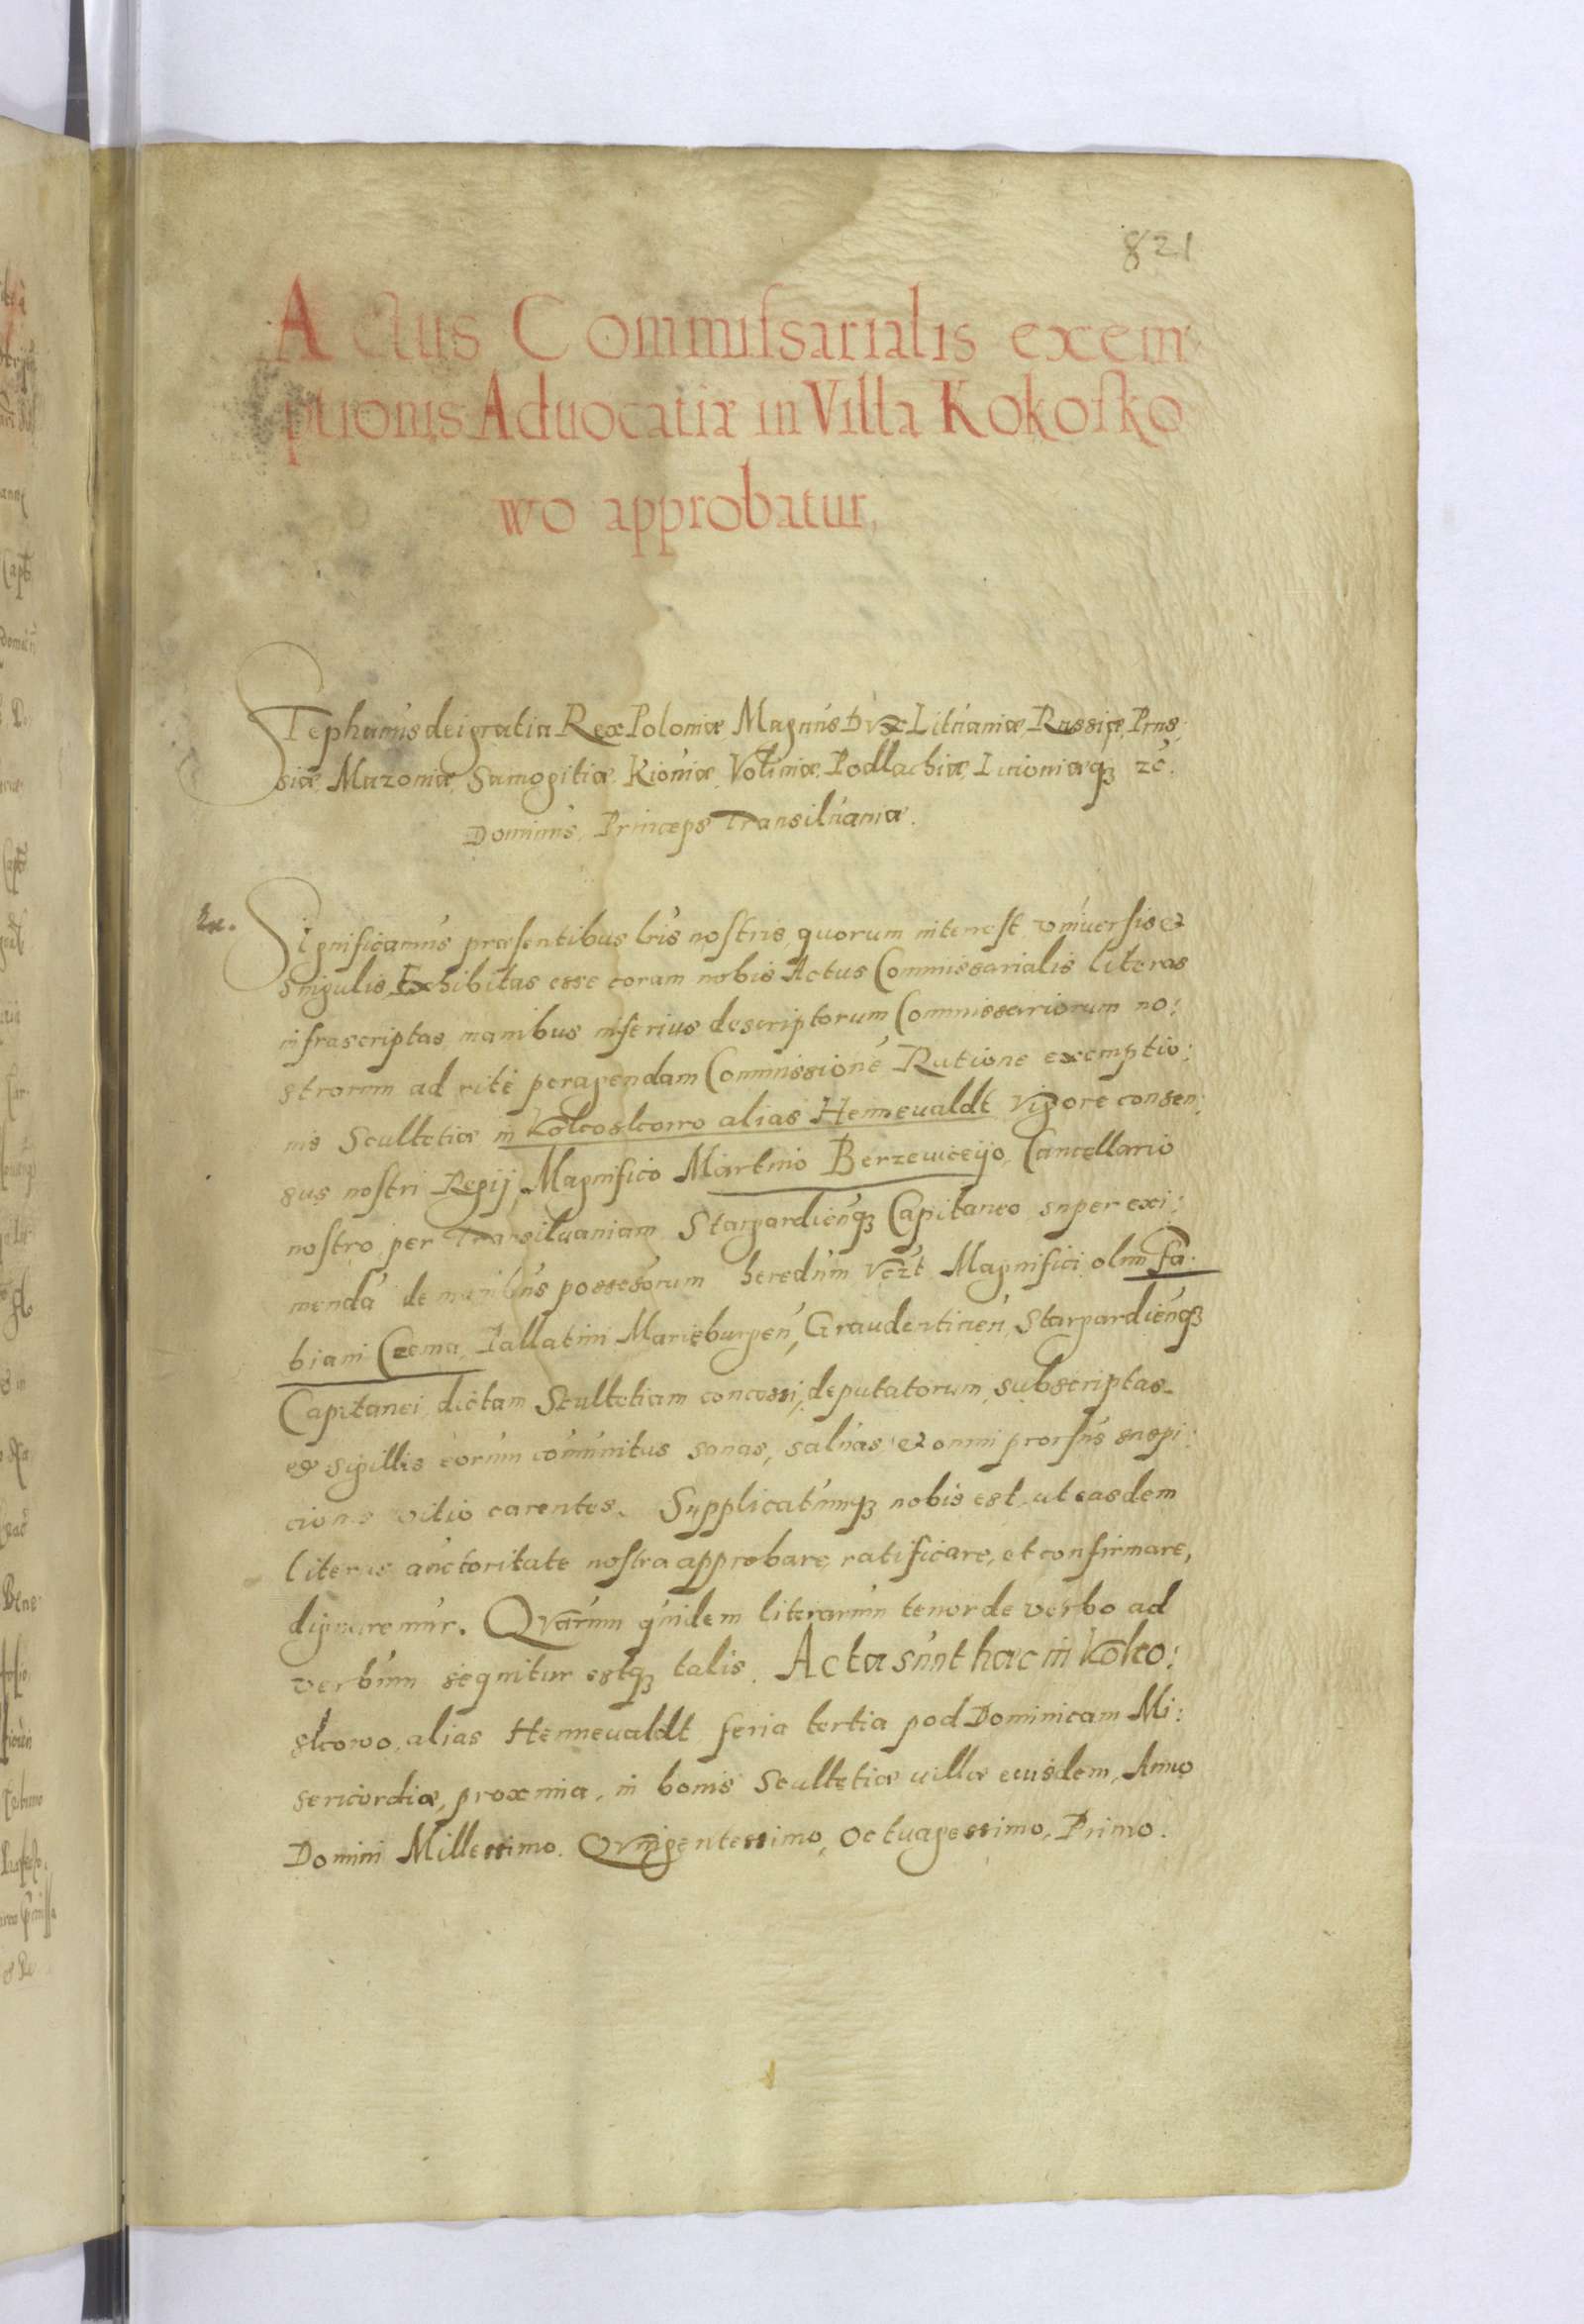 821
Actus Commissarialis exem
ptionis Aduocatiæ in Villa Kokosko
wo approbatur,
Stephanus dei gratia Rex Poloniæ, Magnus Dvx Lituaniæ, Russiæ, Prus:
siæ, Mazoniæ, Samogitiæ, Kiouiæ, Voliniæ, Podlachiæ, Liuoniæq3 zc̃.
Dominus, Princeps Transiluaniæ.
Significamus præsentibus lris nostris, quorum interest vniuersis et
singulis, Exhibitas esse coram nobis Actus Commissarialis literas
infrascriptas, manibus inferius descriptorum Commissariorum no:
strorum ad ritè peragendam Commissionẽ Ratione exemptio:
nis Scultetiæ in Kokoskowo alias Hennevaldt, vigore consen:
sus nostri Regij, Magnifico Martino Berzeuiceijo, Cancellario
nostro, per Transiluaniam, Stargardien̄q3 Capitaneo, super exi:
mendā de manibus possesorum heredum vc̃zt Magnifici olim Fa:
biani Czema, Pallatini Marieburgen̄, Graudentinen̄, Stargardien̄q3
Capitanei, dictam Scultetiam concessi, deputatorum, subscriptas
et sigillis eorum comunitus sanas, saluas, et omni prorsus suspi:
cionis vitio carentes. Supplicatumq3 nobis est, ut easdem
literas auctoritate nostra approbare, ratificare, et confirmare,
dignaremur. Qvarum quidem literarum tenor de verbo ad
verbum sequitur estq3 talis. Acta sunt hæc in Koko:
skowo, alias Hennevaldt feria tertia pod Dominicam Mi:
sericordiæ, proxima, in bonis Scultetiæ uillæ eiusdem, Anno
Domini Millessimo. Qvingentessimo, Octuagessimo, Primo.